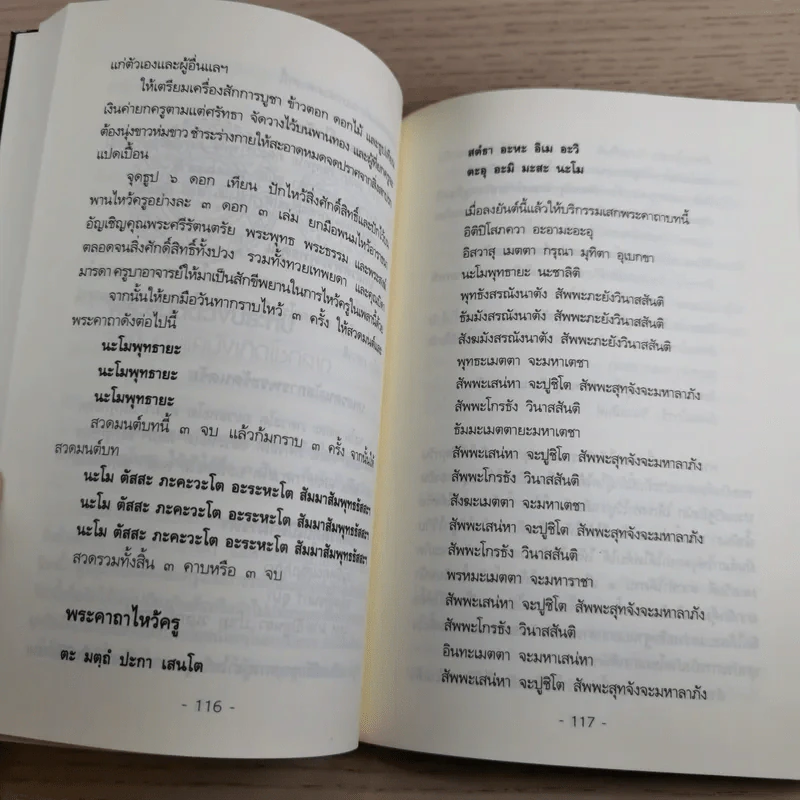 แก่ตัวเองและผู้อื่นแลฯ
ให้เตรียมเครื่องสักการบูชา ข้าวตอก ดอกไม้ และธูปเทียน
เงินค่ายกครูตามแต่ศรัทธา จัดวางไว้บนพานทอง และผู้ที่
ต้องนุ่งขาวห่มขาว ชำระร่างกายให้สะอาดหมดจดปราศจากสิ่ง
แปดเปื้อน
จุดธูป ๖ ดอก เทียน ปักไหว้สิ่งศักดิ์สิทธิ์และปักไว้
พานไหว้ครูอย่างละ ๓ ดอก ๓ เล่ม ยกมือพนมไหว้
อัญเชิญคุณพระศรีรัตนตรัย พระพุทธ พระธรรม และพระสงฆ์
ตลอดจนสิ่งศักดิ์สิทธิ์ทั้งปวง รวมทั้งทวยเทพยดา และคุณบิดา
มารดา ครูบาอาจารย์ให้มาเป็นสักขีพยานในการไหว้ครูในเพลานี้ด้วย
จากนั้นให้ยกมือวันทากราบไหว้ ๓ ครั้ง ให้สวดมนต์และ
พระคาถาดังต่อไปนี้
นะโมพุทธายะ
นะโมพุทธายะ
นะโมพุทธายะ
สวดมนต์บทนี้ ๓ จบ แล้วก้มกราบ ๓ ครั้ง จากนั้นให้
สวดมนต์บท
นะโม ตัสสะ ภะคะวะโต อะระหะโต สัมมาสัมพุทธัสสะฯ
นะโม ตัสสะ ภะคะวะโต อะระหะโต สัมมาสัมพุทธัสสะฯ
นะโม ตัสสะ ภะคะวะโต อะระหะโต สัมมาสัมพุทธัสสะฯ
สวดรวมทั้งสิ้น ๓ คาบหรือ ๓ จบ
พระคาถาไหว้ครู
ตะ มตฺถํ ปะกา เสนโต
- 116 -
สตํธา อะหะ อิเม อะวิ
ตะอุ อะมิ มะสะ นะโม
เมื่อลงยันต์นี้แล้วให้บริกรรมเสกพระคาถาบทนี้
อิติปิโสภควา อะอามะอะอุ
อิสวาสุ เมตตา กรุณา มุทิตา อุเบกขา
นะโมพุทธายะ นะชาลิติ
พุทธังสรณังนาตัง สัพพะภะยังวินาสสันติ
ธัมมังสรณังนาตัง สัพพะภะยังวินาสสันติ
สังฆมังสรณังนาตัง สัพพะภะยังวินาสสันติ
พุทธะเมตตา จะมหาเตชา
สัพพะเสน่หา จะปูชิโต สัพพะสุทจังจะมหาลาภัง
สัพพะโกรธัง วินาสสันติ
ธัมมะเมตตายะมหาเตชา
สัพพะเสน่หา จะปูชิโต สัพพะสุทจังจะมหาลาภัง
สัพพะโกรธัง วินาสสันติ
สังฆะเมตตา จะมหาเตชา
สัพพะเสน่หา จะปูชิโต สัพพะสุทจังจะมหาลาภัง
สัพพะโกรธัง วินาสสันติ
พรหมะเมตตา จะมหาราชา
สัพพะเสน่หา จะปูชิโต สัพพะสุทจังจะมหาลาภัง
สัพพะโกรธัง วินาสสันติ
อินทะเมตตา จะมหาเสน่หา
สัพพะเสน่หา จะปูชิโต สัพพะสุทจังจะมหาลาภัง
- 117 -